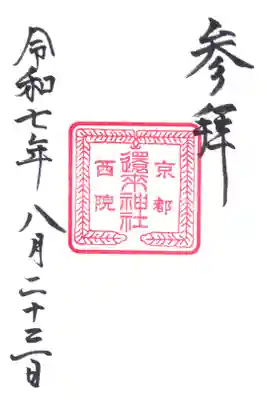 参拝
京都
還来神社
西院
令和七年 八月二十三日